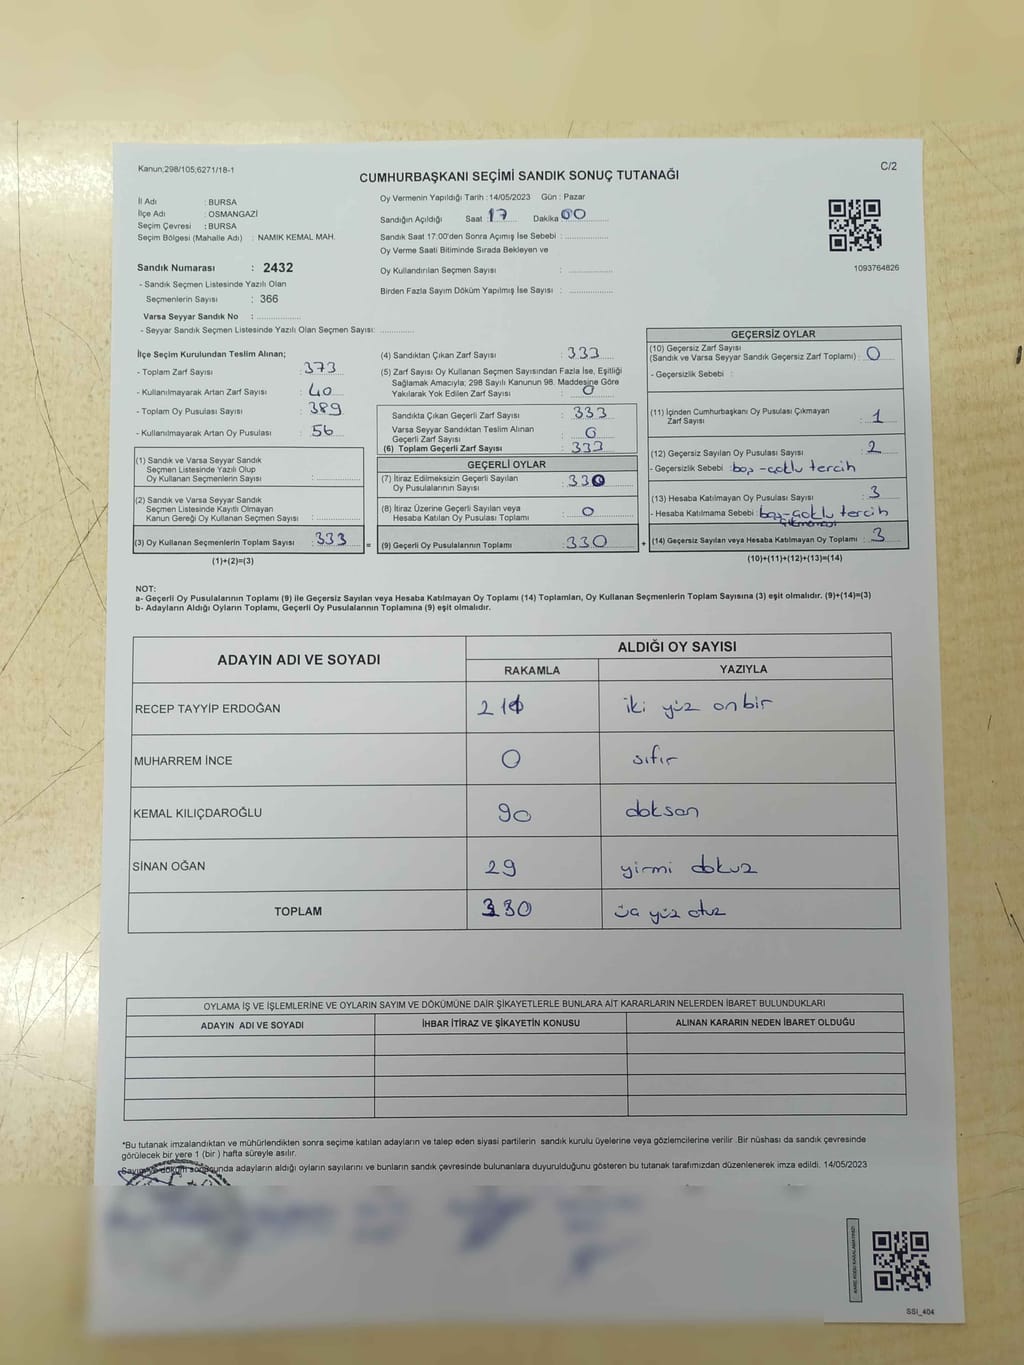 Kanun;298/105;6271/18-1
C/2
CUMHURBAŞKANI SEÇİMİ SANDIK SONUÇ TUTANAĞI
İl Adı : BURSA
İlçe Adı : OSMANGAZİ
Seçim Çevresi : BURSA
Seçim Bölgesi (Mahalle Adı) : NAMIK KEMAL MAH.
Sandık Numarası : 2432
- Sandık Seçmen Listesinde Yazılı Olan
Seçmenlerin Sayısı : 366
Varsa Seyyar Sandık No :
- Seyyar Sandık Seçmen Listesinde Yazılı Olan Seçmen Sayısı:
Oy Vermenin Yapıldığı Tarih :14/05/2023 Gün : Pazar
Sandığın Açıldığı Saat 17 Dakika 00
Sandık Saat 17:00'den Sonra Açımış İse Sebebi :
Oy Verme Saati Bitiminde Sırada Bekleyen ve
Oy Kullandırılan Seçmen Sayısı :
Birden Fazla Sayım Döküm Yapılmış İse Sayısı :
1093764826
İlçe Seçim Kurulundan Teslim Alınan;
- Toplam Zarf Sayısı : 373
- Kullanılmayarak Artan Zarf Sayısı : 40
- Toplam Oy Pusulası Sayısı : 389
- Kullanılmayarak Artan Oy Pusulası : 56
(1) Sandık ve Varsa Seyyar Sandık
Seçmen Listesinde Yazılı Olup
Oy Kullanan Seçmenlerin Sayısı :
(2) Sandık ve Varsa Seyyar Sandık
Seçmen Listesinde Kayıtlı Olmayan
Kanun Gereği Oy Kullanan Seçmen Sayısı :
(3) Oy Kullanan Seçmenlerin Toplam Sayısı : 333
(1)+(2)=(3)
(4) Sandıktan Çıkan Zarf Sayısı : 333
(5) Zarf Sayısı Oy Kullanan Seçmen Sayısından Fazla İse, Eşitliği
Sağlamak Amacıyla; 298 Sayılı Kanunun 98. Maddesine Göre
Yakılarak Yok Edilen Zarf Sayısı : 0
Sandıkta Çıkan Geçerli Zarf Sayısı : 333
Varsa Seyyar Sandıktan Teslim Alınan
Geçerli Zarf Sayısı : 0
(6) Toplam Geçerli Zarf Sayısı : 333
GEÇERLİ OYLAR
(7) İtiraz Edilmeksizin Geçerli Sayılan
Oy Pusulalarının Sayısı : 330
(8) İtiraz Üzerine Geçerli Sayılan veya
Hesaba Katılan Oy Pusulası Toplamı : 0
= (9) Geçerli Oy Pusulalarının Toplamı : 330
GEÇERSİZ OYLAR
(10) Geçersiz Zarf Sayısı
(Sandık ve Varsa Seyyar Sandık Geçersiz Zarf Toplamı) : 0
- Geçersizlik Sebebi :
(11) İçinden Cumhurbaşkanı Oy Pusulası Çıkmayan
Zarf Sayısı : 1
(12) Geçersiz Sayılan Oy Pusulası Sayısı : 2
- Geçersizlik Sebebi : boş-çoklu tercih
(13) Hesaba Katılmayan Oy Pusulası Sayısı : 3
- Hesaba Katılmama Sebebi : boş-çoklu tercih
çıkmaması
+ (14) Geçersiz Sayılan veya Hesaba Katılmayan Oy Toplamı : 3
(10)+(11)+(12)+(13)=(14)
NOT:
a- Geçerli Oy Pusulalarının Toplamı (9) ile Geçersiz Sayılan veya Hesaba Katılmayan Oy Toplamı (14) Toplamları, Oy Kullanan Seçmenlerin Toplam Sayısına (3) eşit olmalıdır. (9)+(14)=(3)
b- Adayların Aldığı Oyların Toplamı, Geçerli Oy Pusulalarının Toplamına (9) eşit olmalıdır.
ADAYIN ADI VE SOYADI
ALDIĞI OY SAYISI
RAKAMLA YAZIYLA
RECEP TAYYİP ERDOĞAN 211 iki yüz onbir
MUHARREM İNCE 0 sıfır
KEMAL KILIÇDAROĞLU 90 doksan
SİNAN OĞAN 29 yirmi dokuz
TOPLAM 330 üç yüz otuz
OYLAMA İŞ VE İŞLEMLERİNE VE OYLARIN SAYIM VE DÖKÜMÜNE DAİR ŞİKAYETLERLE BUNLARA AİT KARARLARIN NELERDEN İBARET BULUNDUKLARI
ADAYIN ADI VE SOYADI İHBAR İTİRAZ VE ŞİKAYETİN KONUSU ALINAN KARARIN NEDEN İBARET OLDUĞU
*Bu tutanak imzalandıktan ve mühürlendikten sonra seçime katılan adayların ve talep eden siyasi partilerin sandık kurulu üyelerine veya gözlemcilerine verilir .Bir nüshası da sandık çevresinde
görülecek bir yere 1 (bir) hafta süreyle asılır.
Sayım ve döküm sonucunda adayların aldığı oyların sayılarını ve bunların sandık çevresinde bulunanlara duyurulduğunu gösteren bu tutanak tarafımızdan düzenlenerek imza edildi. 14/05/2023
SSI_404